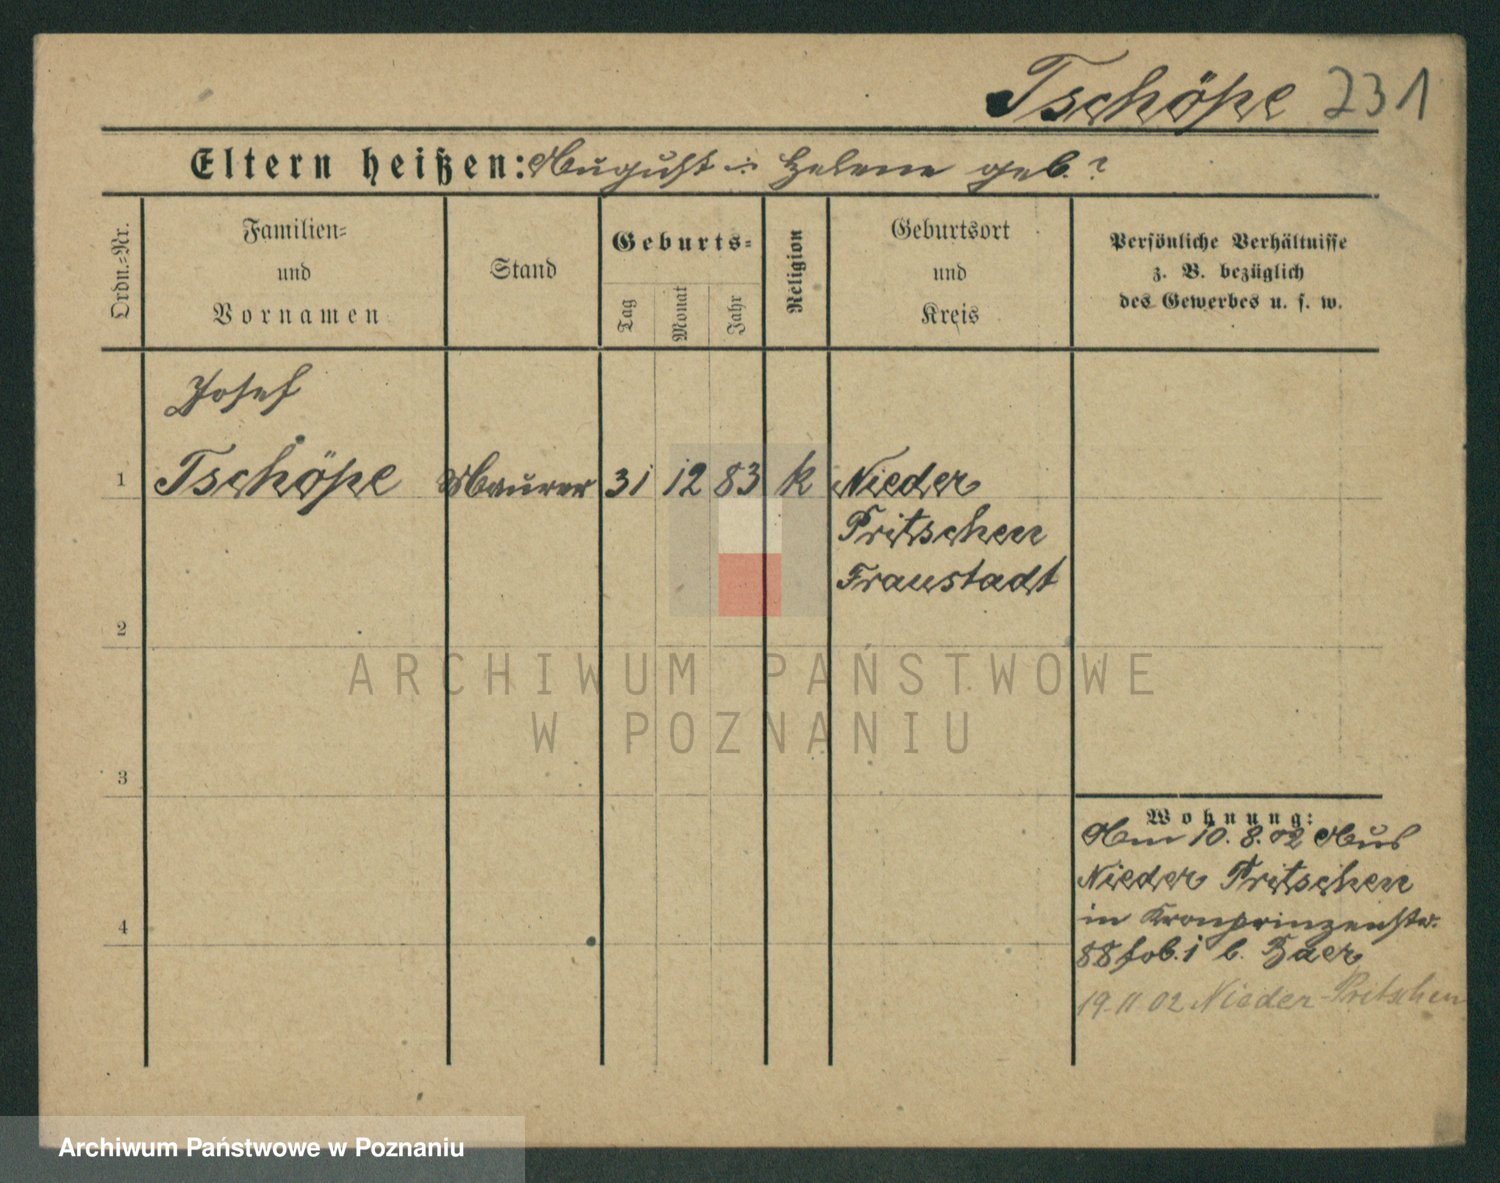 Tschöpe 231
Eltern heißen: August u. Helene geb. ?
Ordn.=Nr.
Familien=
und
Vornamen
Stand
Geburts=
Tag
Monat
Jahr
Religion
Geburtsort
und
Kreis
Persönliche Verhältnisse
z. B. bezüglich
des Gewerbes u. s. w.
Josef
1 Tschöpe Maurer 31 12 83 k Nieder
Pritschen
Fraustadt
2
3
4
Wohnung:
Am 10. 8. 02 Aus
Nieder Pritschen
in Kronprinzenstr.
88 I b.
19.11.02 Nieder-Pritschen
ARCHIWUM PAŃSTWOWE
W POZNANIU
Archiwum Państwowe w Poznaniu